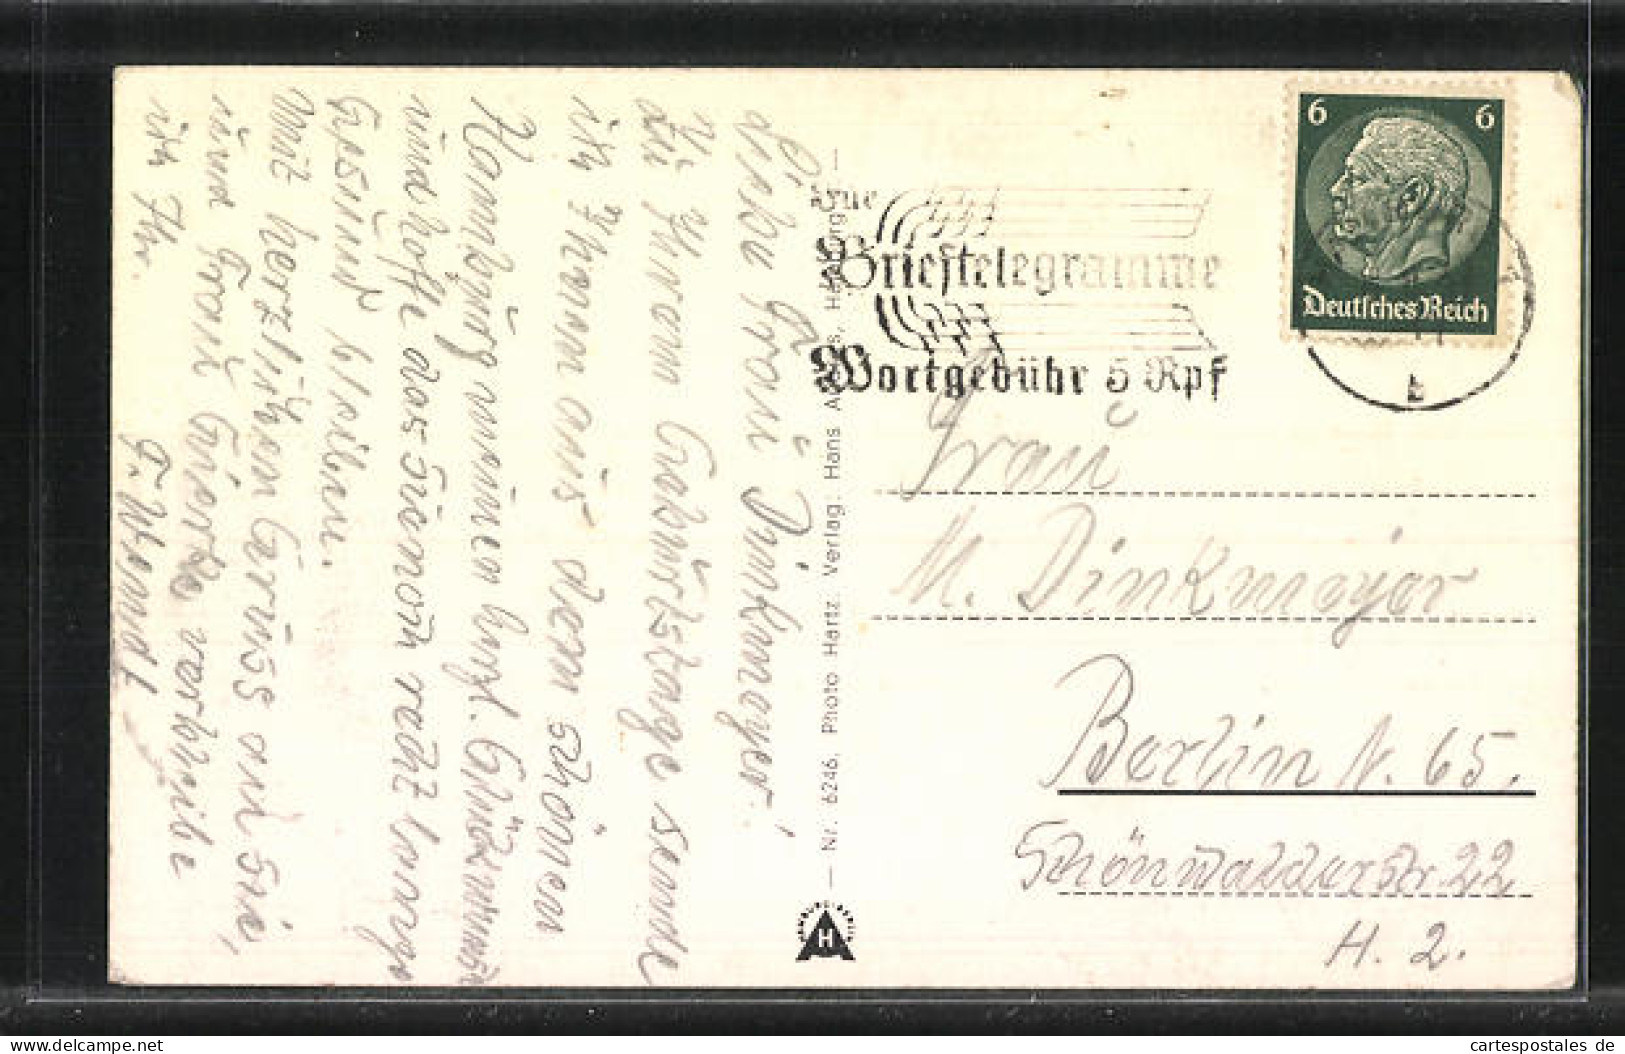 Liebe Frau Dinkmayer!
Zu Ihrem Geburtstage sende
ich Ihnen aus dem schönen
Hamburg meinen herzl. Glückwunsch
und hoffe das Sie noch recht lange
Gesund bleiben.
Mit herzlichen Gruss an Sie,
und Frau verbleibe
ich Ihr.
Nr. 6246, Photo Hartz, Verlag: Hans Hamburg
HAMBURG-BERLIN
H
Briefstelegramme
Wortgebühr 5 Rpf
6 6
Deutsches Reich
b
Frau
M. Dinkmayer
Berlin N. 65.
Schönwalderstr. 22
H. 2.
PostcardFinder
cartespostales de